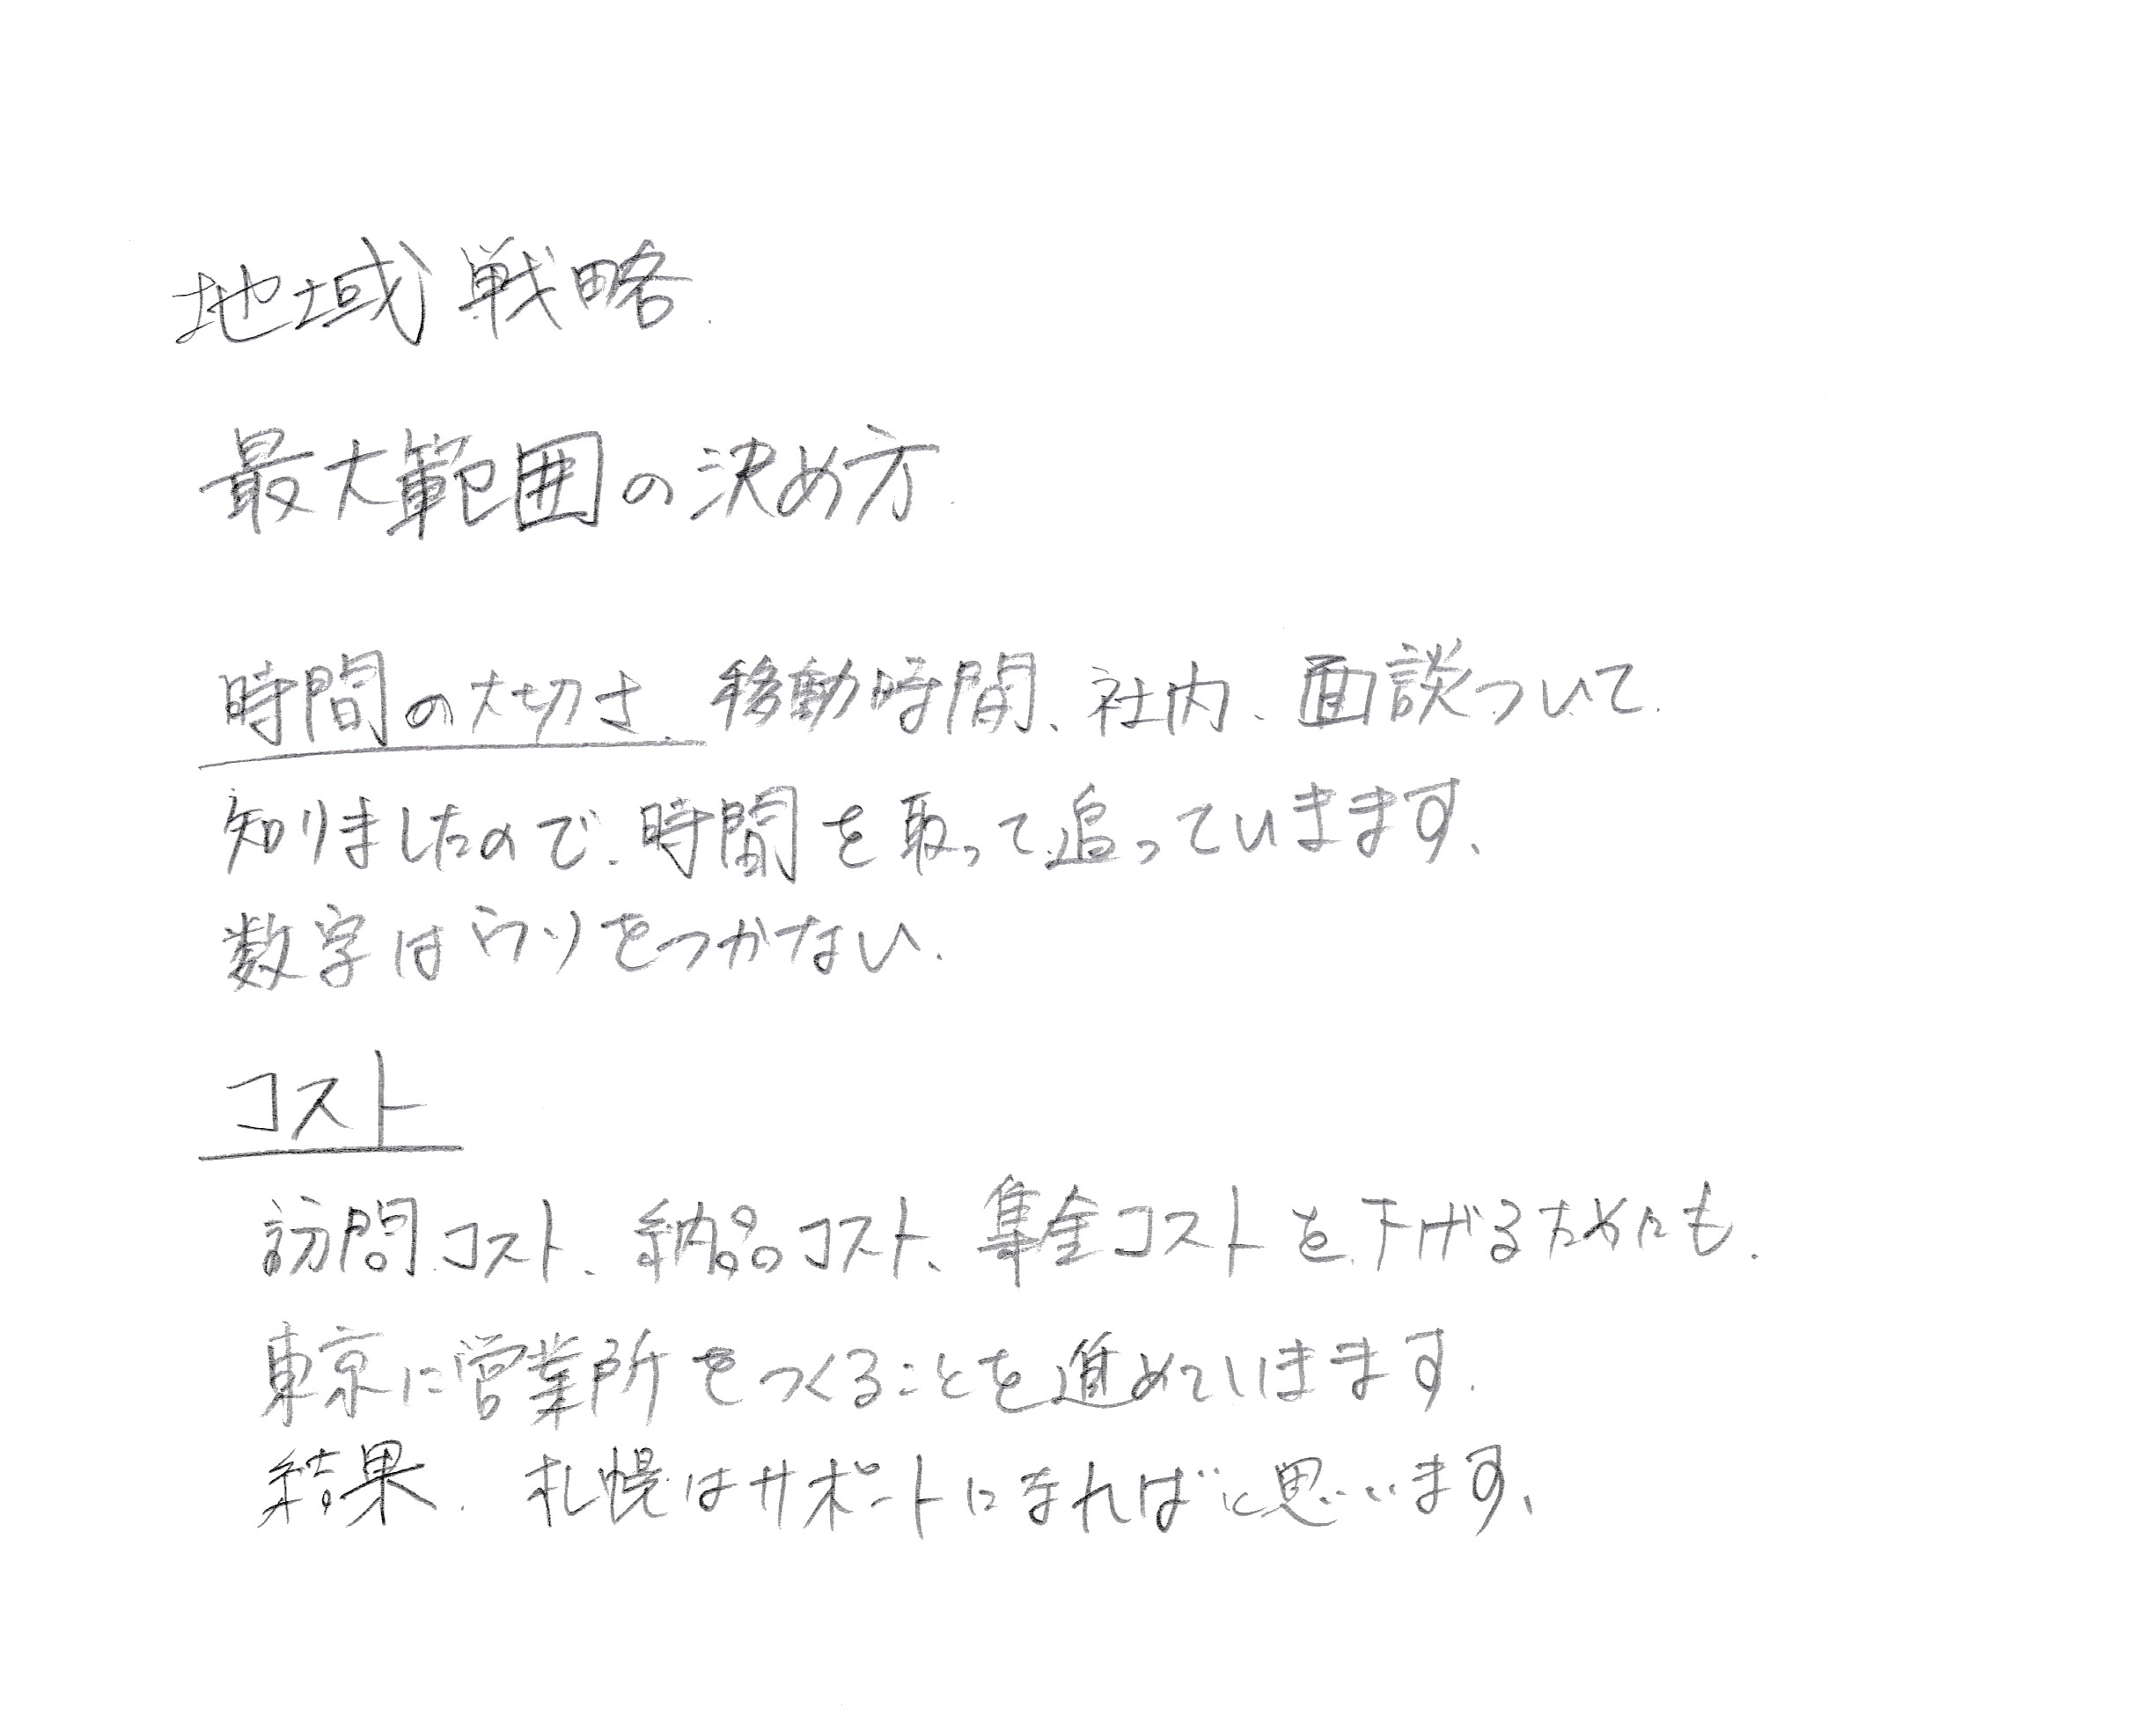 地域戦略.
最大範囲の決め方.
時間の大切さ. 移動時間、社内、面談ついて.
知りましたので、時間を取って追っています、
数字はウソをつかない.
コスト
訪問コスト、納品コスト、集金コストを下げるためにも.
東京に営業所をつくることを進めています.
結果. 札幌はサポートになればと思います、